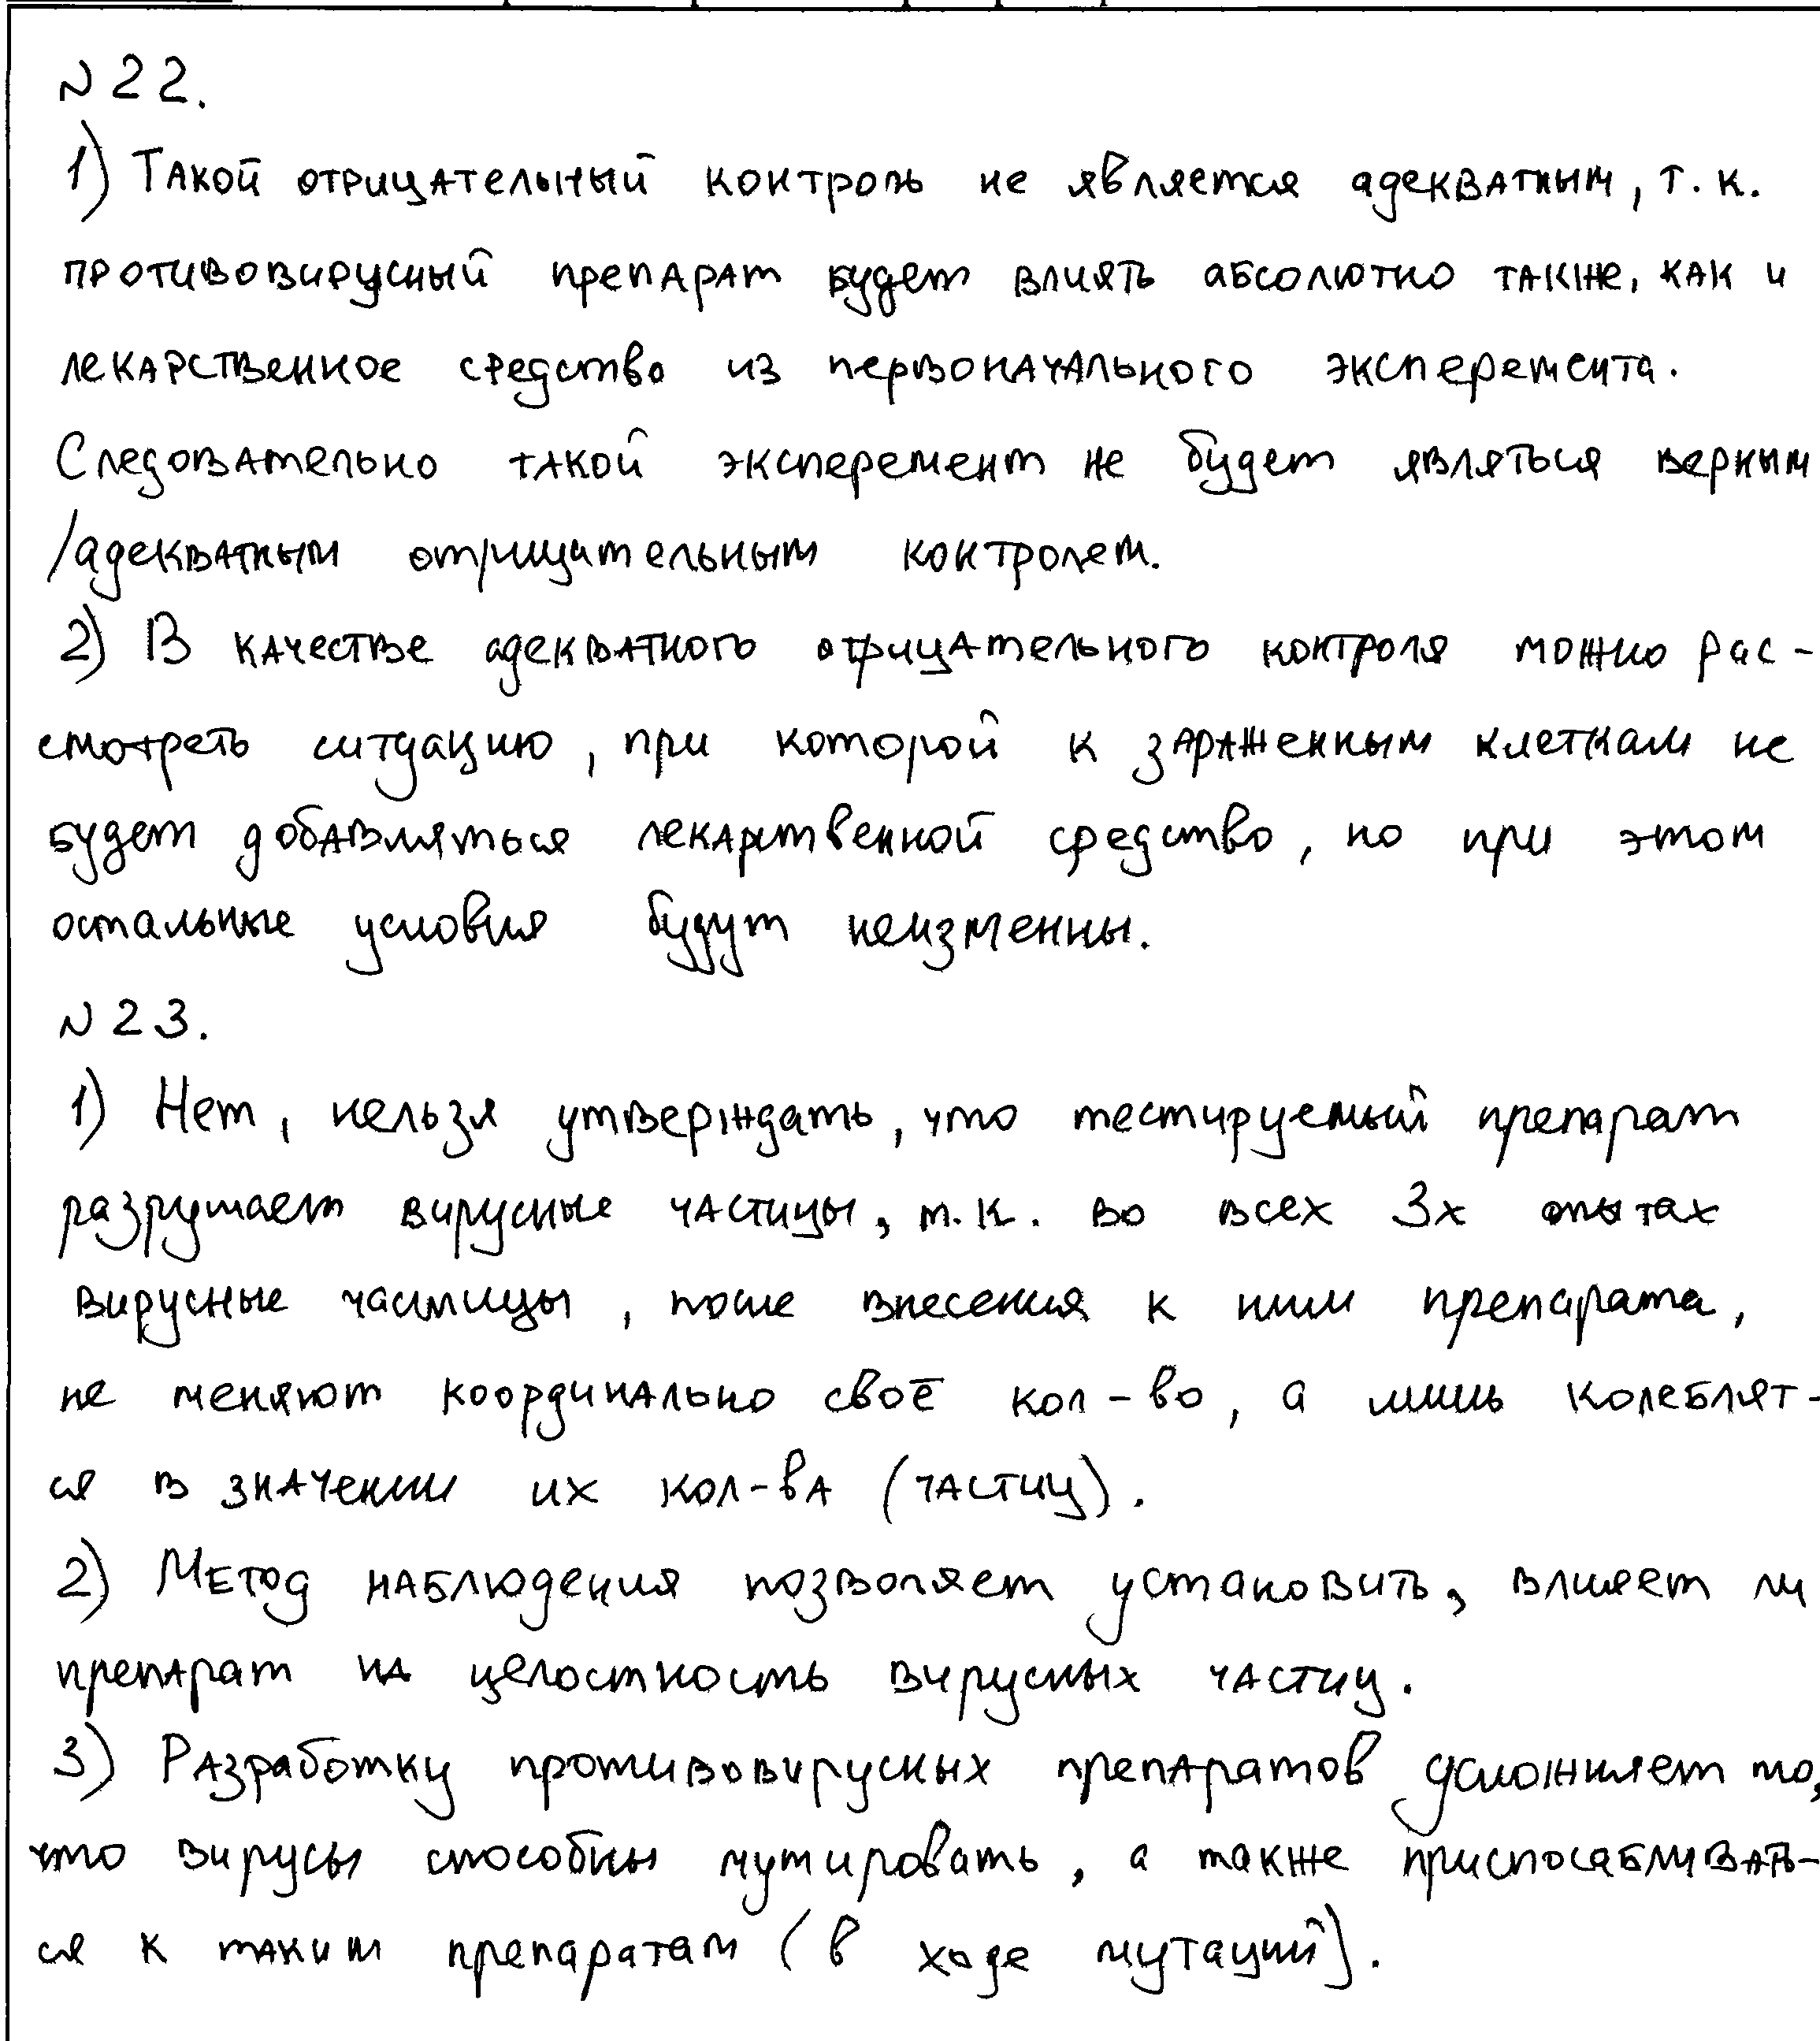 N 22.
1) Такой отрицательный контроль не является адекватным, т. к.
противовирусный препарат будет влиять абсолютно также, как и
лекарственное средство из первоначального эксперемента.
Следовательно такой эксперемент не будет являться верным
/адекватным отрицательным контролем.
2) В качестве адекватного отрицательного контроля можно рас-
смотреть ситуацию, при которой к зараженным клеткам не
будет добавляться лекарственной средство, но при этом
остальные условия будут неизменны.
N 23.
1) Нет, нельзя утверждать, что тестируемый препарат
разрушает вирусные частицы, т.к. во всех 3х опытах
вирусные частицы, после внесения к ним препарата,
не меняют координально своё кол-во, а лишь колеблят-
ся в значении их кол-ва (частиц).
2) Метод наблюдения позволяет установить, влияет ли
препарат на целостность вирусных частиц.
3) Разработку противовирусных препаратов усложняет то,
что вирусы способны мутировать, а также приспосабливать-
ся к таким препаратам (в ходе мутаций).